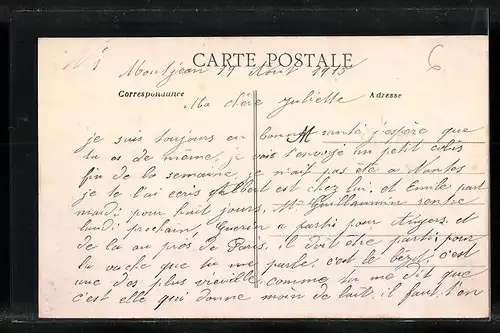 N° 1
6
CARTE POSTALE
Montjean 17 Aout 1915
Correspondance
Adresse
Ma chère Juliette
je suis toujours en bonne santé j'espère que
tu es de même, je vais t'envoyé un petit colis
fin de la semaine, je n'ait pas été a Nantes
je te l'ai ecris Albert est chez lui, et Emile part
mardi pour huit jours, Mme Guillaumin rentre
lundi prochain, Guerin a parti pour Angers, et
de la au près de Paris, il doit être parti, pour
la vache que tu me parle, c'est le bézil, c'est
une des plus vieille, comme tu me dit que
c'est elle qui donne moin de lait, il faut t'en